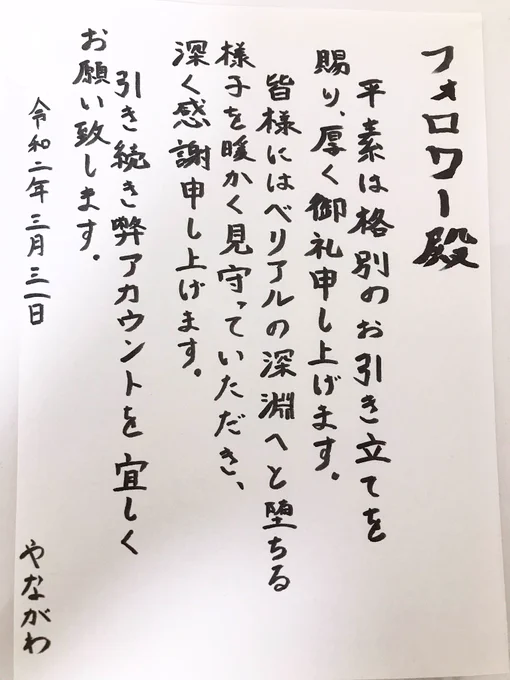 フォロワー殿
平素は格別のお引き立てを
賜り、厚く御礼申し上げます。
皆様にはベリアルの深淵へと堕ちる
様子を暖かく見守っていただき、
深く感謝申し上げます。
引き続き弊アカウントを宜しく
お願い致します。
令和二年三月三一日
やながわ